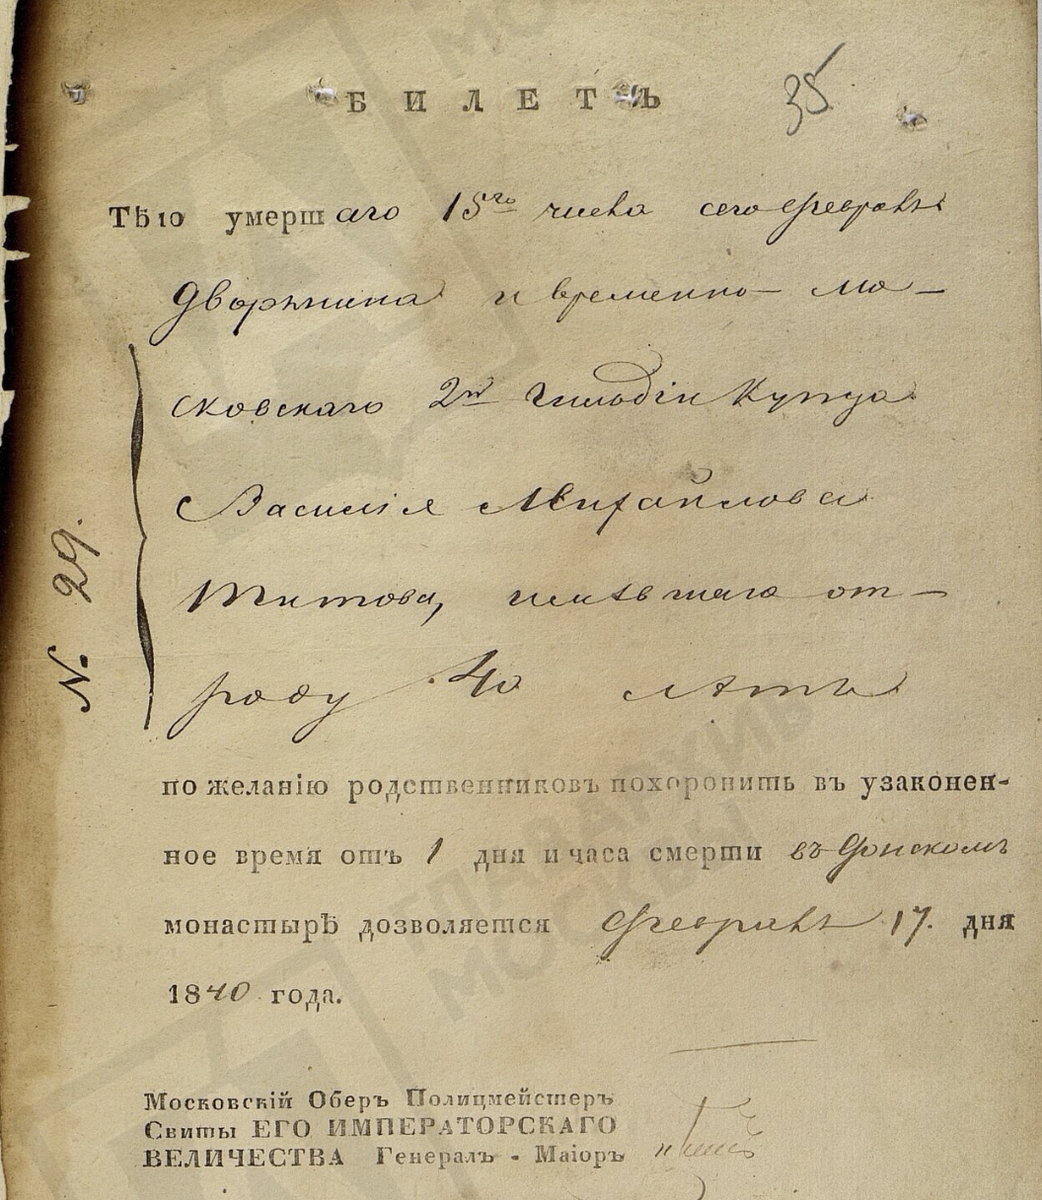 БИЛЕТЪ
35
Тѣло умершаго 15го числа сего Февраля
Дворянина и временно мо-
сковскаго 2й Гильдіи Купца
Василія Михайлова
Титова, имѣвшаго от-
роду 40 лѣтъ
No. 29.
по желанію родственниковъ похоронить въ узаконен-
ное время отъ 1 дня и часа смерти въ Донскомъ
монастырѣ дозволяется Февраля 17. дня
1840 года.
Московскій Оберъ Полицмейстеръ
Свиты ЕГО ИМПЕРАТОРСКАГО
ВЕЛИЧЕСТВА Генералъ-Маіоръ
ГЛАВАРХИВ
МОСКВЫ